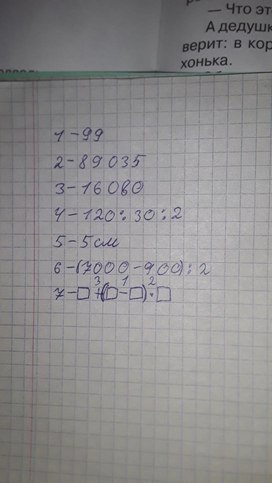 — Что эт
А дедушк
верит: в кор
хонька.
1-99
2-89035
3-16080
4-120:30:2
5-5см
6-(7000-900):2
3 1 2
7-□+(□-□):□